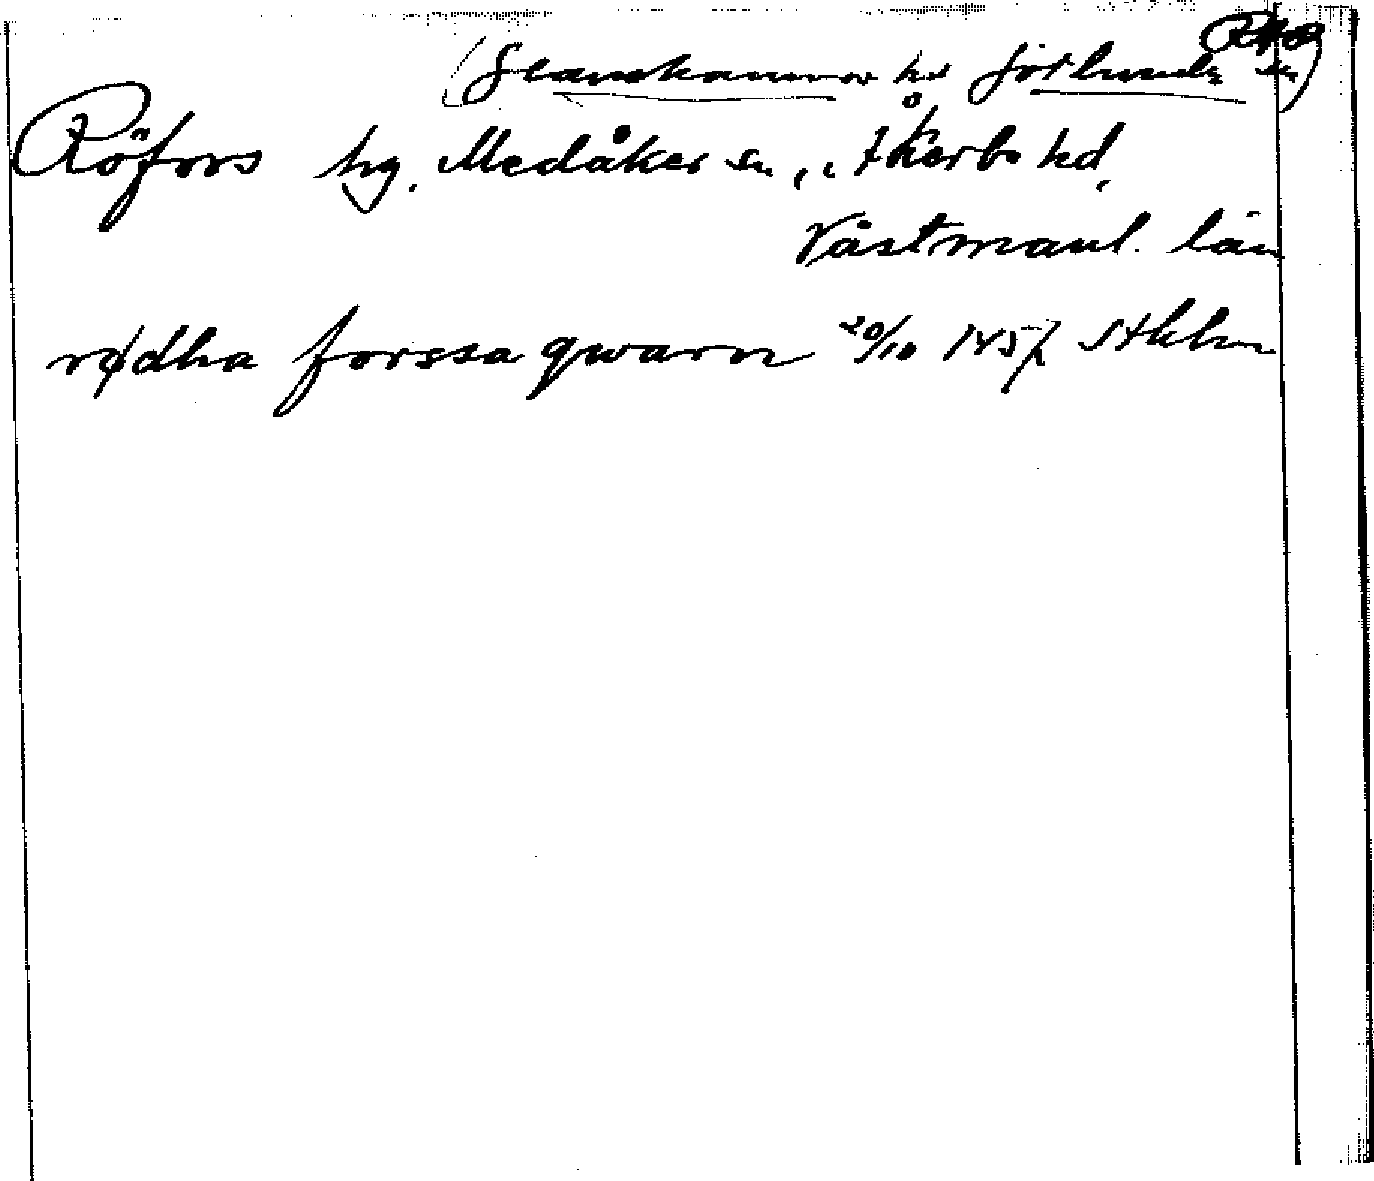 (Glanshammar hd Götlunda sn)
Röfors hg. Medåker sn, Åkerbo hd,
Västmanl. län
rødha forssa qwarn 20/10 1457 Sthlm